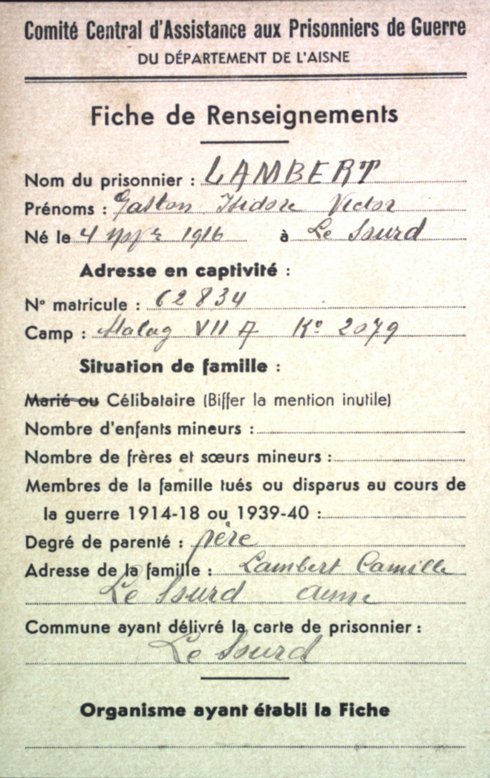 Comité Central d'Assistance aux Prisonniers de Guerre
DU DÉPARTEMENT DE L'AISNE
Fiche de Renseignements
Nom du prisonnier : LAMBERT
Prénoms : Gaston Isidore Victor
Né le 4 1916 à Le Sourd
Adresse en captivité :
N° matricule : 62834
Camp : Stalag VII A Ko 2079
Situation de famille :
Marié ou Célibataire (Biffer la mention inutile)
Nombre d'enfants mineurs :
Nombre de frères et sœurs mineurs :
Membres de la famille tués ou disparus au cours de
la guerre 1914-18 ou 1939-40 :
Degré de parenté : père
Adresse de la famille : Lambert Camille
Le Sourd Aisne
Commune ayant délivré la carte de prisonnier :
Le Sourd
Organisme ayant établi la Fiche